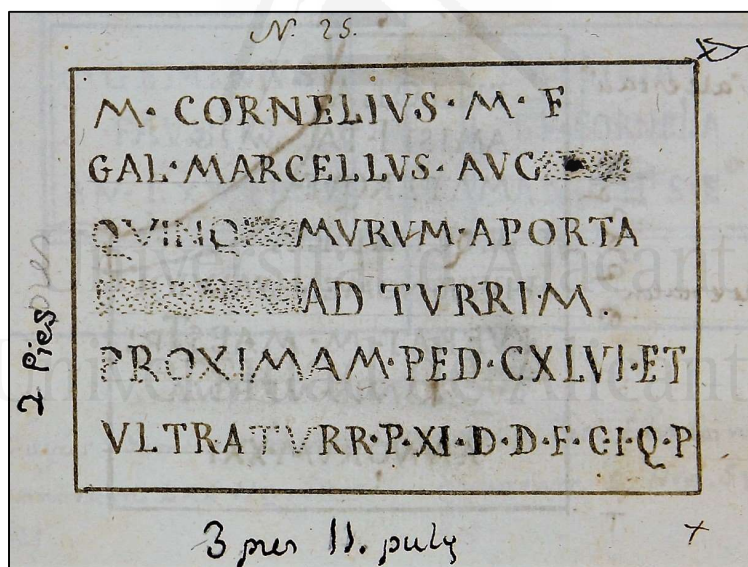 N. 25.
M· CORNELIVS· M· F
GAL·MARCELLVS· AVG
QVINQ MVRVM·APORTA
AD TVRRIM.
PROXIMAM·PED·CXLVI·ET
VLTRATVRR·P·XI·D·D·F·C·I·Q·P
2 Pies
3 pies 11. pulg